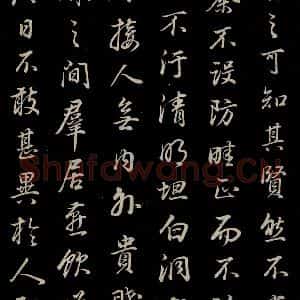 之可知其賢然不
不設防而不
不汙清明坦白洞
接人無內外貴賤
之間羣居燕飲
日不敢甚異於人
Shufawang.CN